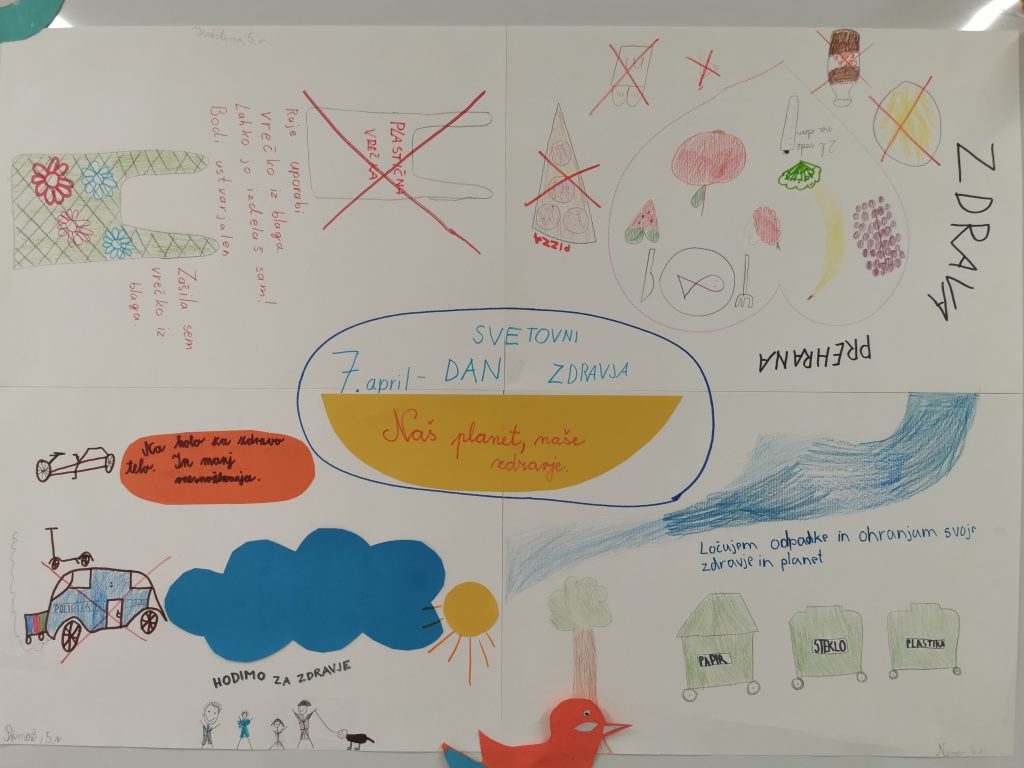 Kristina, 5. r
PLASTIČNA
VREČKA
Raje uporabi
vrečko iz blaga.
Lahko jo izdelaš sam!
Bodi ustvarjalen.
Zašila sem
vrečko iz
blaga.
PIZZA
2 l vode
na dan
ZDRAVA
PREHRANA
SVETOVNI
7. april - DAN ZDRAVJA
Naš planet, naše
zdravje.
Na kolo za zdravo
telo. In manj
onesnoževanja.
POLICIJA
HODIMO ZA ZDRAVJE
Ločujem odpadke in ohranjam svoje
zdravje in planet
PAPIR
STEKLO
PLASTIKA